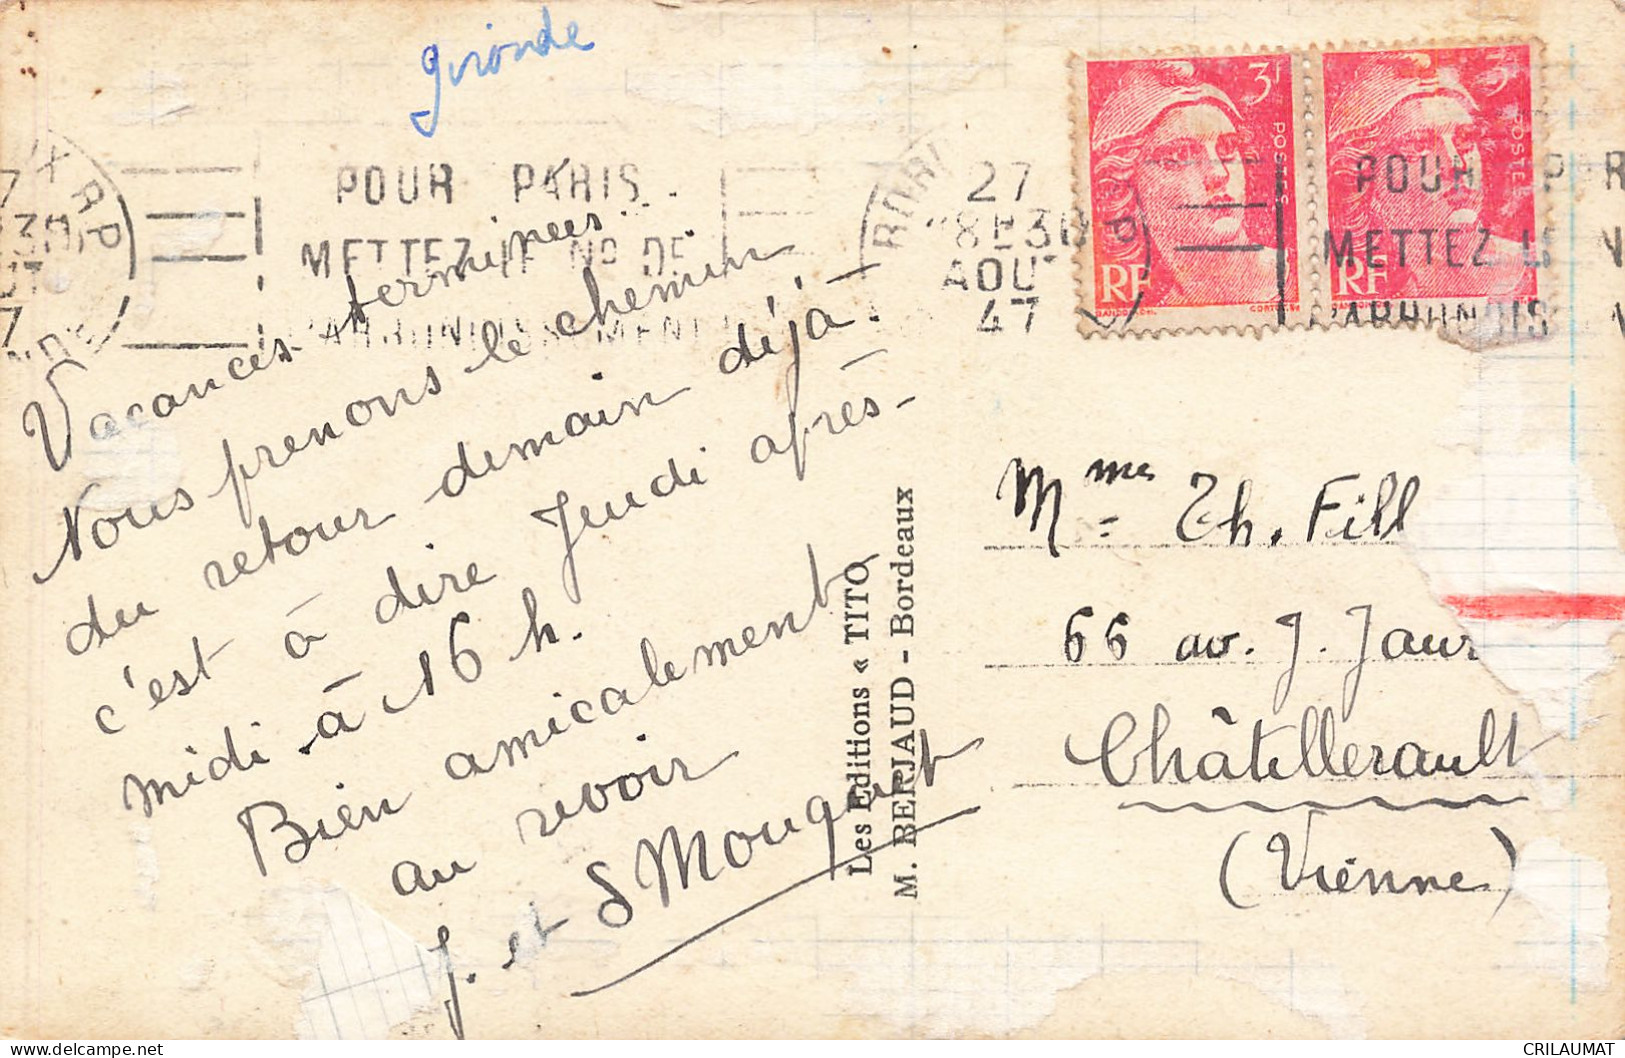 Gironde
POUR PARIS
METTEZ LE No DE
L'ARRONDISSEMENT
27
18H30
AOUT
47
3F
POSTES
RF
POSTES
RF
POUR PAR
METTEZ LE N
L'ARRONDIS
Vacances terminées...
Nous prenons le chemin
du retour demain déjà -
c'est à dire Jeudi après-
midi à 16 h.
Bien amicalement
au revoir
J. et S Mouquet
Les Editions « TITO
M. BERJAUD - Bordeaux
Mme Th. Fill
66 av. J. Jaur
Châtellerault
(Vienne)
CRILAUMAT